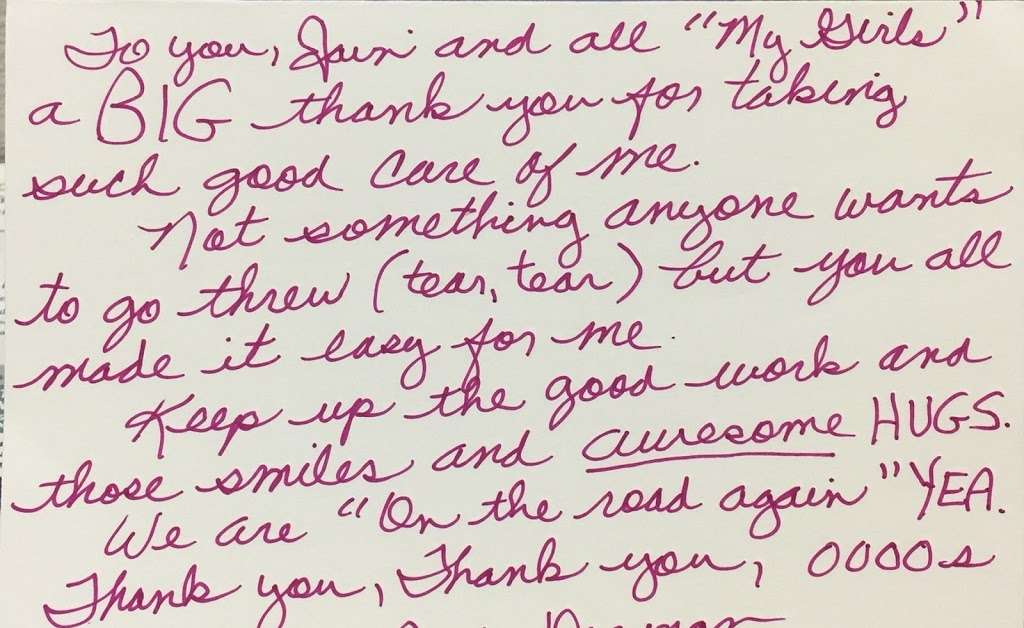 To you, Jain and all "My Girls"
a BIG thank you for taking
such good care of me.
Not something anyone wants
to go threw (tear, tear) but you all
made it easy for me.
Keep up the good work and
those smiles and awesome HUGS.
We are "On the road again" YEA.
Thank you, Thank you, OOOOs